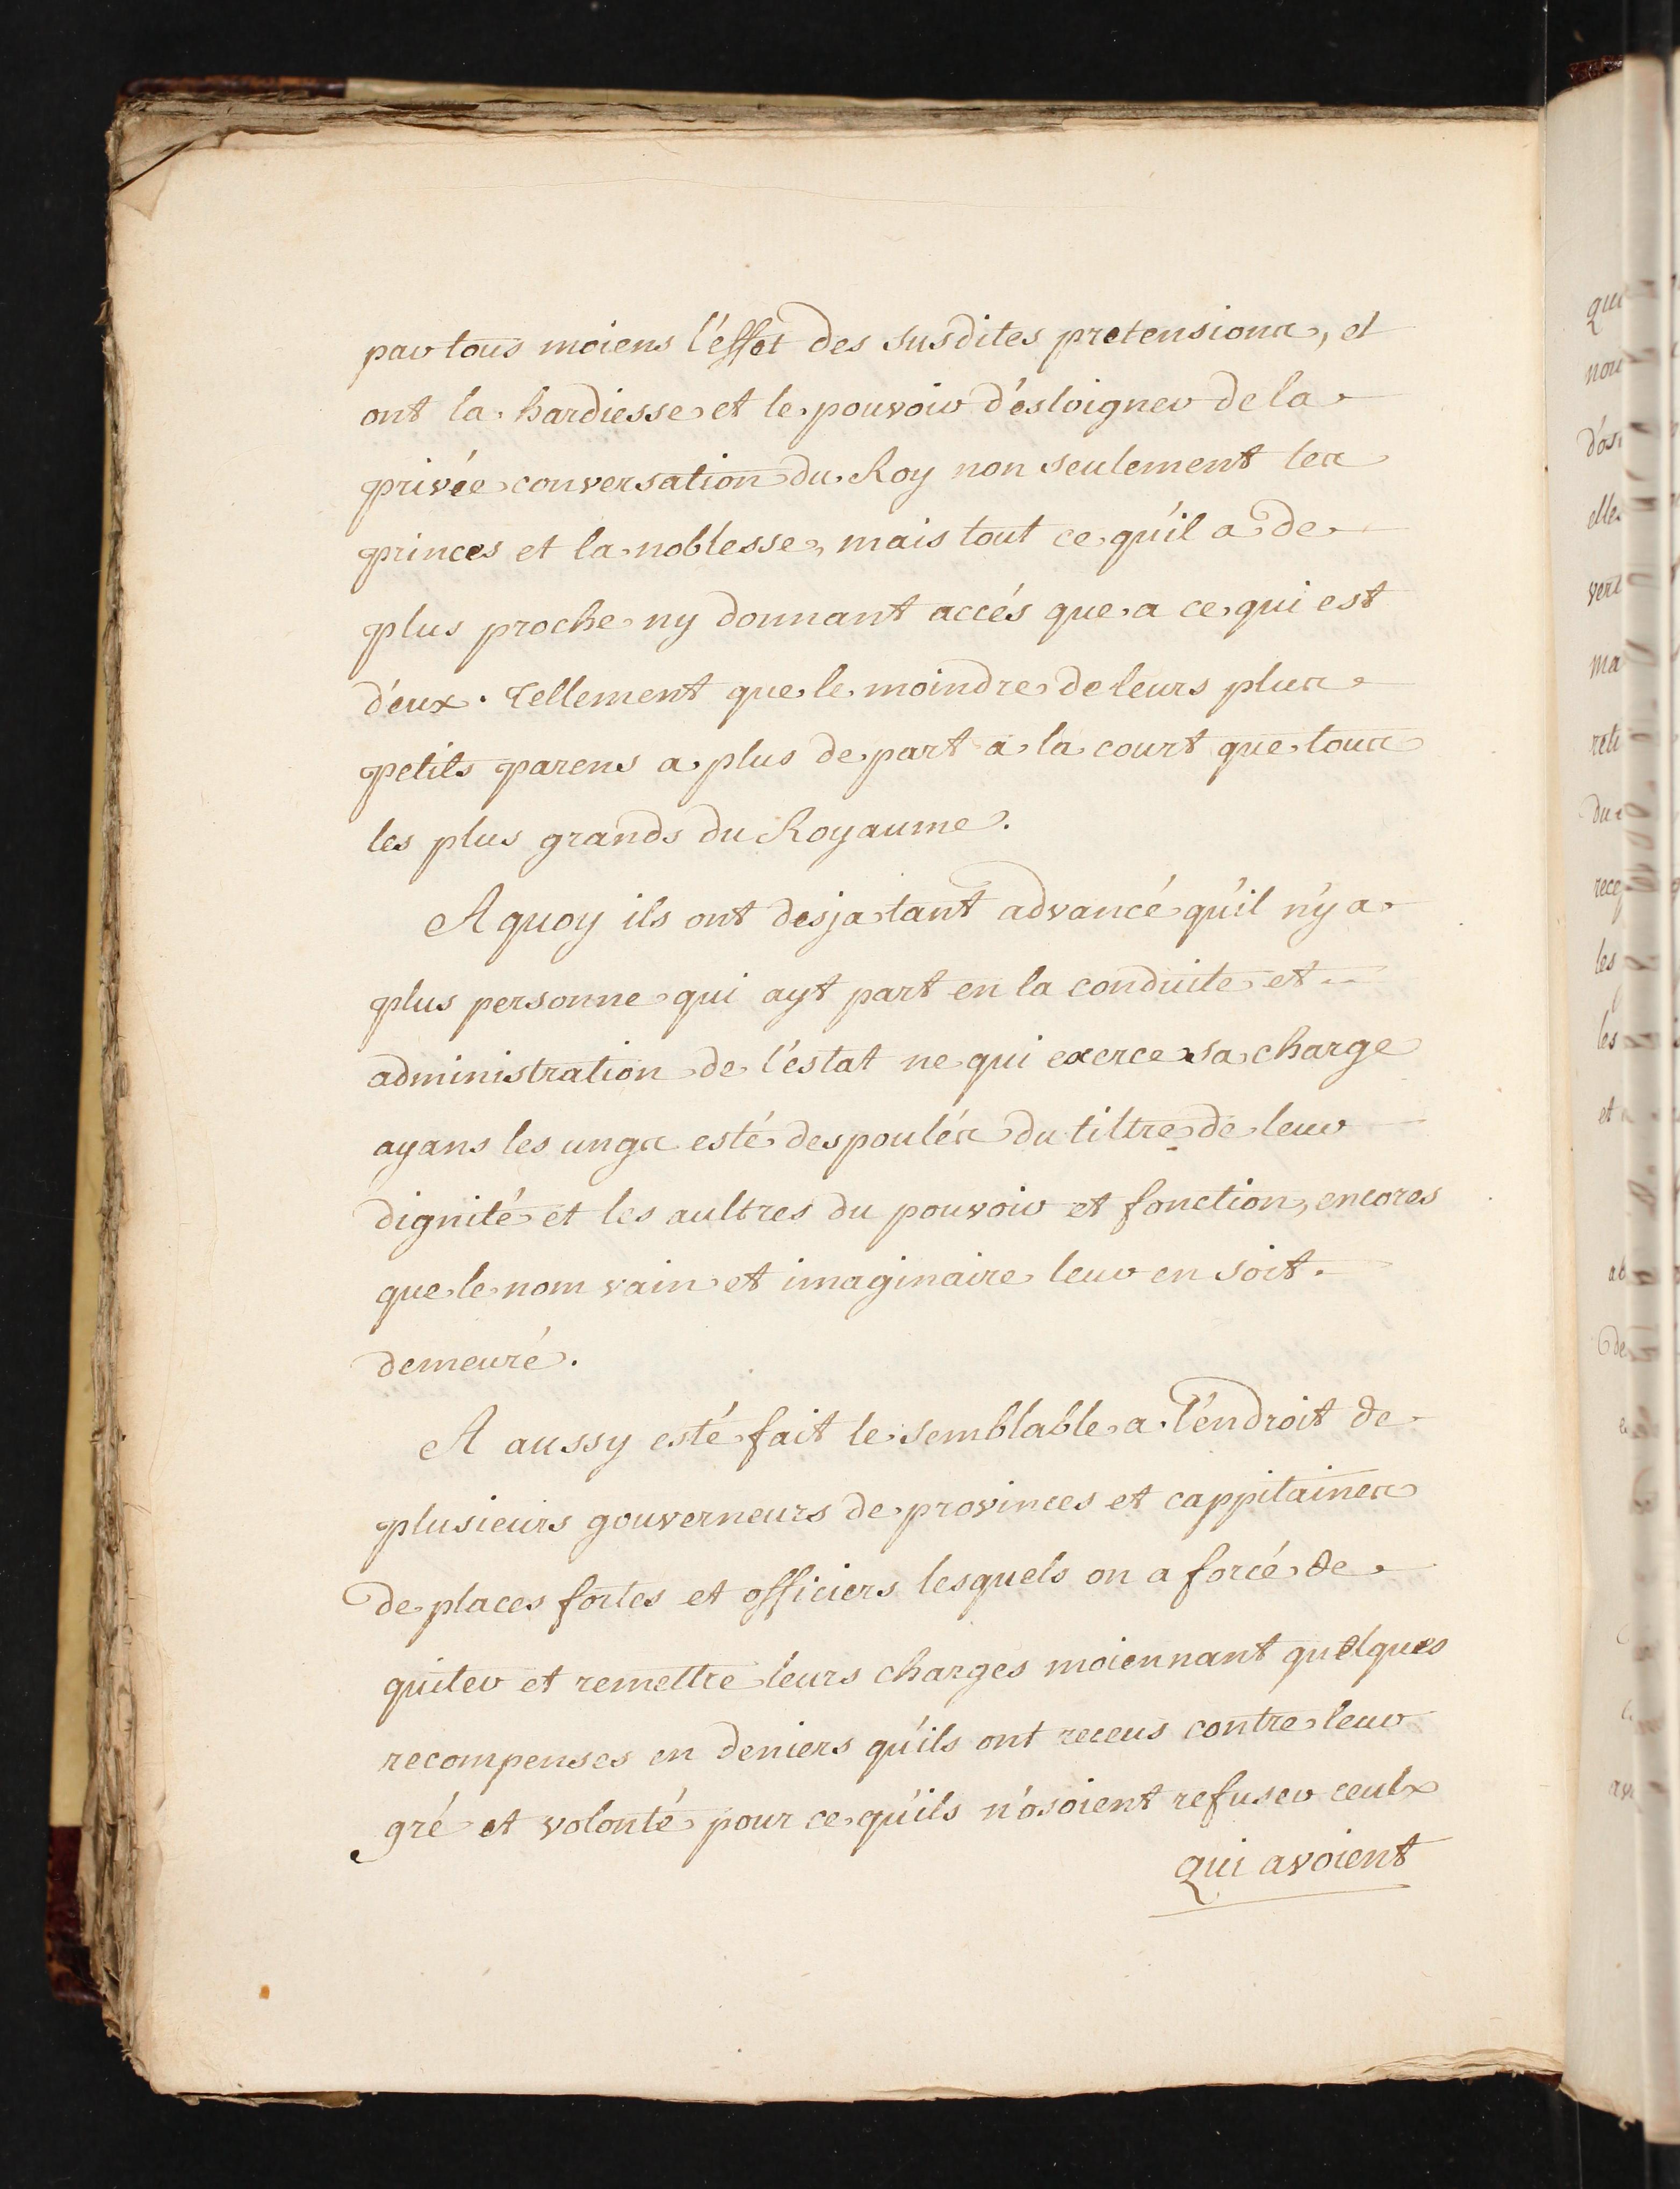 par tous moiens l'éffet des susdites pretensions, et
ont la hardiesse et le pouvoir d'ésloigner de la
privée conversation du Roy non seulement les
princes et la noblesse, mais tout ce qu'il a de
plus proche ny donnant accés que a ce qui est
d'eux. Tellement que le moindre de leurs plus
petits parens a plus de part a la court que tous
les plus grands du Royaume.
A quoy ils ont desja tant advancé qu'il n'y a
plus personne qui ayt part en la conduite et
administration de l'estat ne qui exerce sa charge
ayans les ungs esté despoulés du tiltre de leur
dignité et les aultres du pouvoir et fonction, encores
que le nom vain et imaginaire leur en soit
demeuré.
A aussy esté fait le semblable a l'éndroit de
plusieurs gouverneurs de provinces et cappitaines
de places fortes et officiers lesquels on a forcé de
quiter et remettre leurs charges moiennant quelques
recompenses en deniers qu'ils ont receus contre leur
gré et volonté pour ce qu'ils n'osoient refuser ceulx
qui avoient